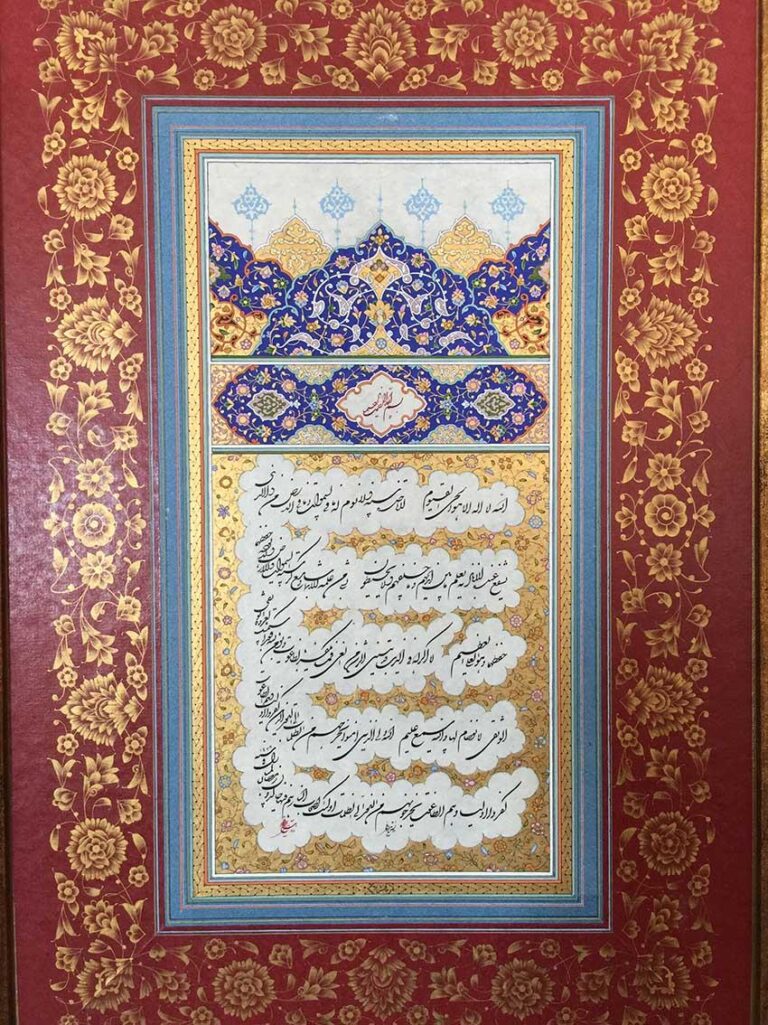 بسم الله الرحمن الرحیم
الله لا اله الا هو الحی القیوم لا تاخذه سنة و لا نوم له ما فی السموات و ما فی الارض من ذا الذی
یشفع عنده الا باذنه یعلم ما بین ایدیهم و ما خلفهم و لا یحیطون بشیء من علمه الا بما شاء وسع کرسیه السموات و الارض و لا یؤده
حفظهما و هو العلی العظیم لا اکراه فی الدین قد تبین الرشد من الغی فمن یکفر بالطاغوت و یؤمن بالله فقد استمسک بالعروة
الوثقی لا انفصام لها والله سمیع علیم الله ولی الذین آمنوا یخرجهم من الظلمات
کفروا اولیاؤهم الطاغوت یخرجونهم من النور الی الظلمات اولئک اصحاب النار هم فیها خالدون